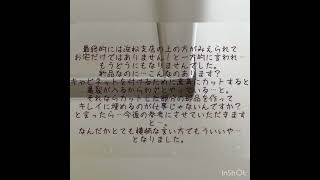 最終的には浜松支店の上の方がみえられて
お宅だけではありません！と一方的に言われ…
もうどうにもなりませんでした。
新品なのに…こんなのあります？
キャビネットを付けるために直角にカットすると
亀裂が入るからわざとやっている…と。
それならカットした部分の部品を作って
キレイに埋めるのが仕事じゃないんですか？
と言ったら…今後の参考にさせていただきます
と…。
なんだかとても横柄な言い方でもういいや…
となりました。
InShOt